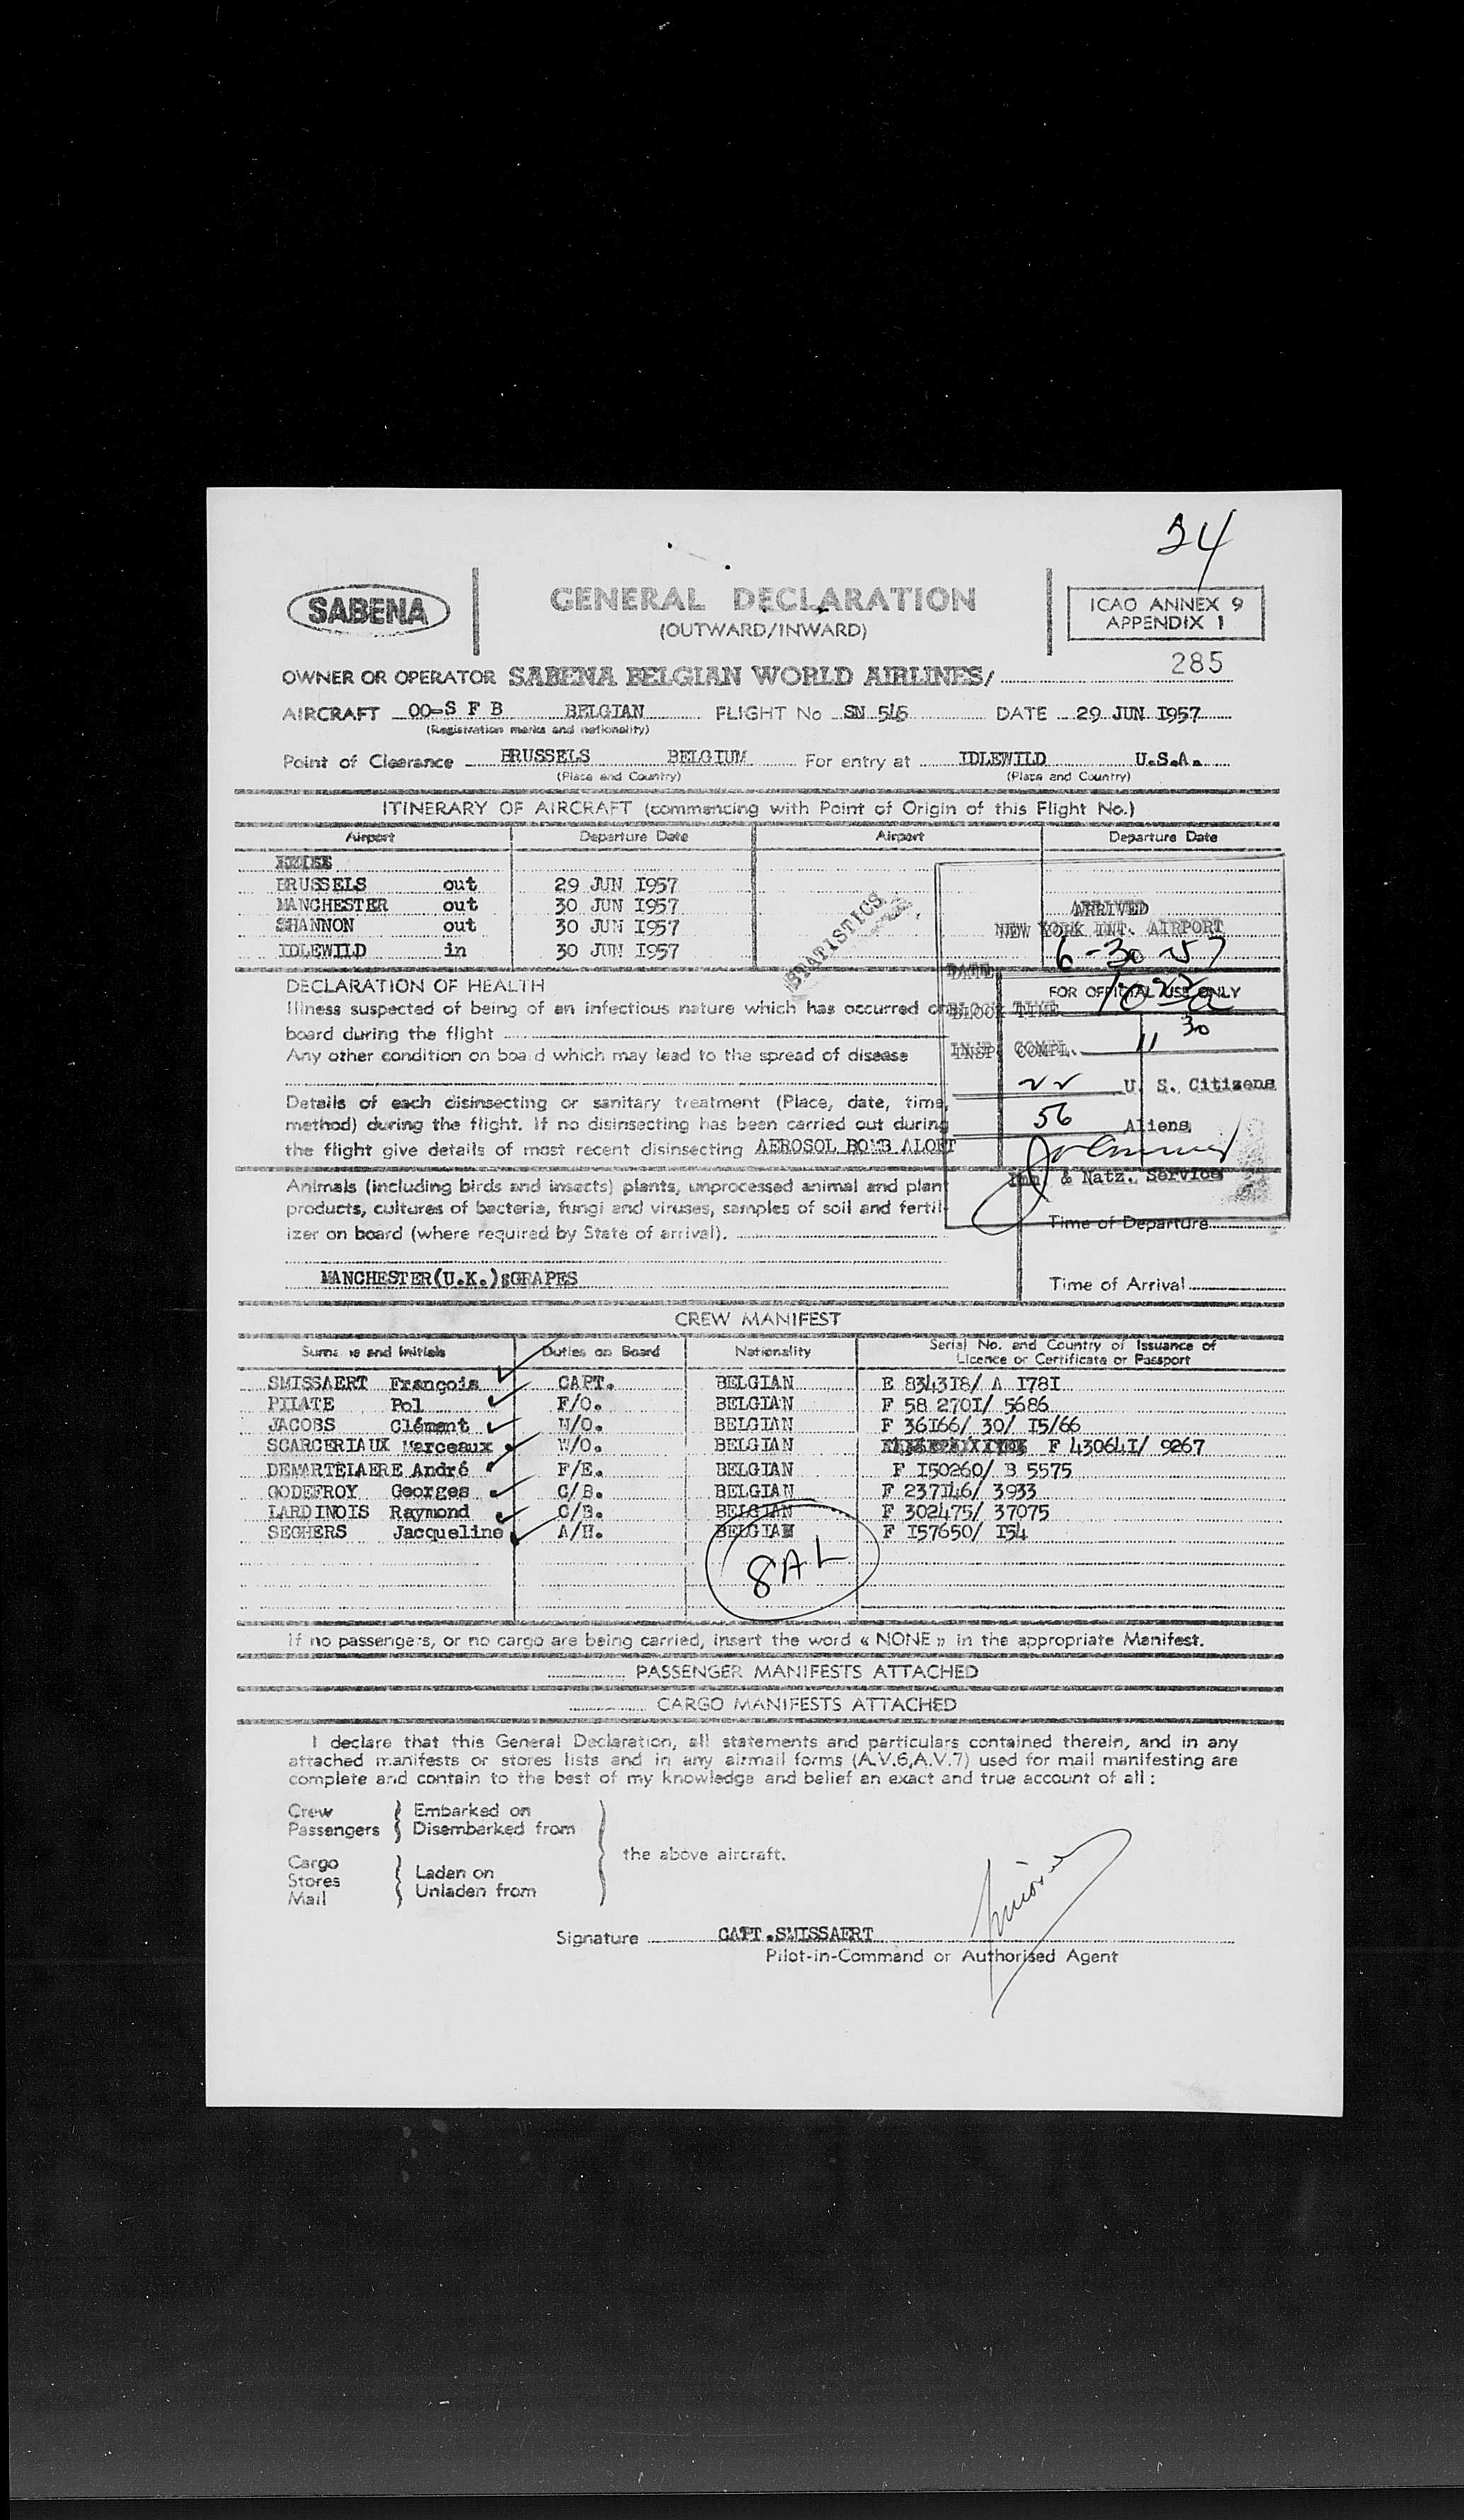 24
SABENA
GENERAL DECLARATION
(OUTWARD/INWARD)
ICAO ANNEX 9
APPENDIX 1
285
OWNER OR OPERATOR SABENA BELGIAN WORLD AIRLINES/
AIRCRAFT OO-S F B BELGIAN FLIGHT No SN 545 DATE 29 JUN I957
(Registration marks and nationality)
Point of Clearance BRUSSELS BELGIUM For entry at IDLEWILD U.S.A.
(Place and Country) (Place and Country)
ITINERARY OF AIRCRAFT (commencing with Point of Origin of this Flight No.)
Airport Departure Date Airport Departure Date
BRUSSELS out 29 JUN I957
MANCHESTER out 30 JUN I957
SHANNON out 30 JUN I957
IDLEWILD in 30 JUN I957
STATISTICS
ARRIVED
NEW YORK INT. AIRPORT
DATE 6-30-57
BLOCK TIME
INSP. COMPL. 11 30
22 U. S. Citizens
56 Aliens
Imm. & Natz. Service
DECLARATION OF HEALTH
Illness suspected of being of an infectious nature which has occurred on
board during the flight
Any other condition on board which may lead to the spread of disease
Details of each disinsecting or sanitary treatment (Place, date, time,
method) during the flight. If no disinsecting has been carried out during
the flight give details of most recent disinsecting AEROSOL BOMB ALOFT
FOR OFFICIAL USE ONLY
Animals (including birds and insects) plants, unprocessed animal and plant
products, cultures of bacteria, fungi and viruses, samples of soil and fertil-
izer on board (where required by State of arrival).
MANCHESTER(U.K.):GRAPES
Time of Departure
Time of Arrival
CREW MANIFEST
Surname and Initials Duties on Board Nationality Serial No. and Country of Issuance of
Licence or Certificate or Passport
SMISSAERT François CAPT. BELGIAN E 8343I8/ A I78I
PILATE Pol F/O. BELGIAN F 58 270I/ 5686
JACOBS Clément N/O. BELGIAN F 36I66/ 30/ I5/66
SCARCERIAUX Marceaux W/O. BELGIAN F 43064I/ 9267
DEMARTELAERE André F/E. BELGIAN F I50260/ B 5575
GODEFROY Georges C/B. BELGIAN F 237I46/ 3933
LARDINOIS Raymond C/B. BELGIAN F 302475/ 37075
SEGHERS Jacqueline A/H. BELGIAN F I57650/ I54
8 A L
If no passengers, or no cargo are being carried, insert the word « NONE » in the appropriate Manifest.
PASSENGER MANIFESTS ATTACHED
CARGO MANIFESTS ATTACHED
I declare that this General Declaration, all statements and particulars contained therein, and in any
attached manifests or stores lists and in any airmail forms (A.V.6,A.V.7) used for mail manifesting are
complete and contain to the best of my knowledge and belief an exact and true account of all :
Crew Embarked on
Passengers Disembarked from
the above aircraft.
Cargo
Stores Laden on
Mail Unladen from
Signature CAPT.SMISSAERT
Pilot-in-Command or Authorised Agent